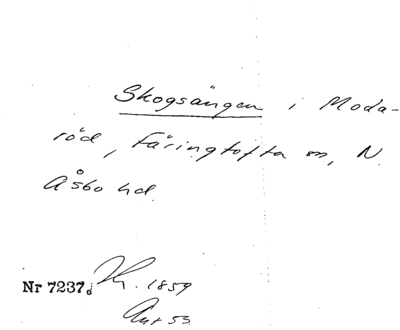 Skogsängen i Moda-
röd, Färingtofta sn, N.
Åsbo hd.
Nr 7237. 1859